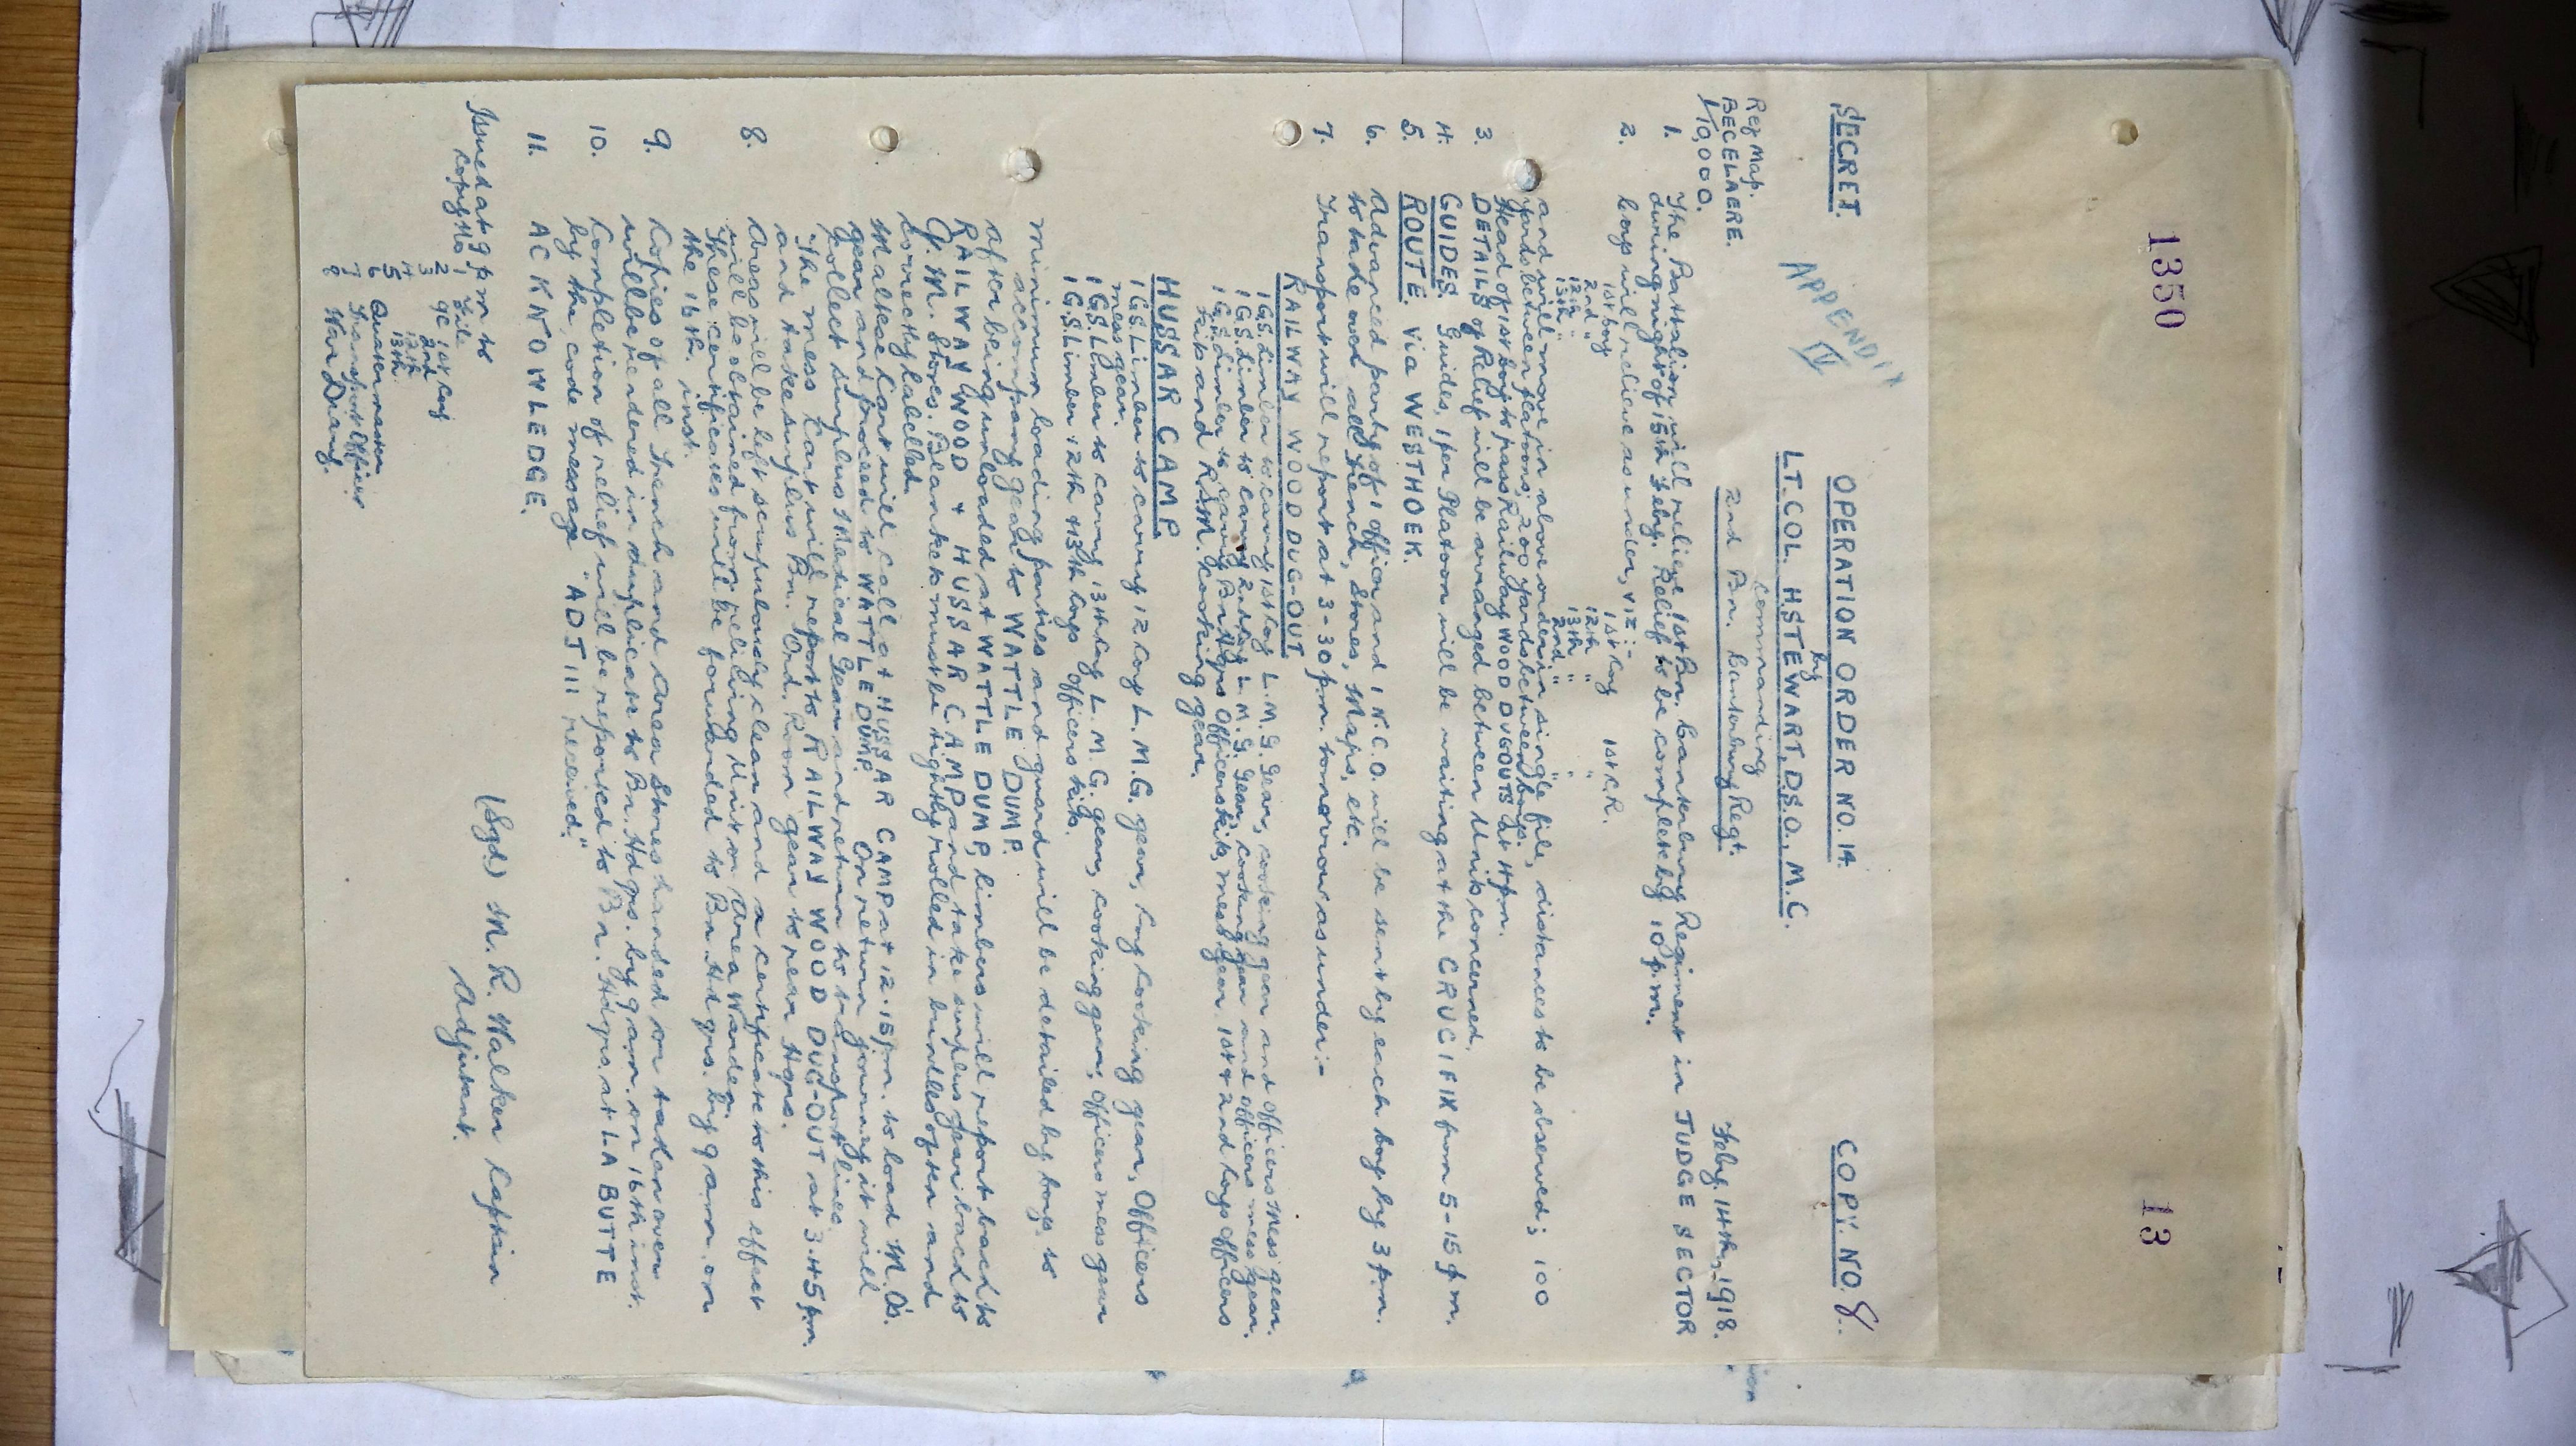 1350
13
APPENDIX
IV
SECRET.
OPERATION ORDER NO. 14.
COPY. NO. 8.
by
LT. COL. H. STEWART, D.S.O., M.C.
Commanding
2nd Bn. Canterbury Regt.
Ref Map.
BECELAERE.
1/10,000.
Feby. 14th, 1918.
1. The Battalion will relieve 1st Bn. Canterbury Regiment in JUDGE SECTOR
during night of 15th Feby. Relief to be complete by 10 p.m.
2. Coys will relieve as under, viz:-
1st Coy 1st Coy 1st C.R.
2nd " 12th " "
12th " 13th " "
13th " 2nd " "
and will move in above order in single file, distances to be observed; 100
yards between platoons; 200 yards between Coys.
Head of 1st Coy to pass Railway WOOD DUGOUTS at 4 p.m.
3. DETAILS of Relief will be arranged between Units concerned.
4. GUIDES. Guides, 1 per Platoon will be waiting at the CRUCIFIX from 5-15 p.m.
5. ROUTE. Via WESTHOEK.
6. Advanced party of 1 Officer and 1 N.C.O. will be sent by each Coy by 3 p.m.
to take over all Trench, Stores, Maps, etc.
7. Transport will report at 3-30 p.m. tomorrow as under:-
RAILWAY WOOD DUG-OUT
1 G.S. Limber to carry 1st Coy L.M.G. Gear, cooking gear and Officers Mess gear.
1 G.S. Limber to carry 2nd Coy L.M.G. Gear, cooking gear and officers mess gear.
1 G.S. Limber to carry Bn Hdqrs Officers kits, mess gear, 1st & 2nd Coys Officers
kits and R.S.M. Cooking gear.
HUSSAR CAMP.
1 G.S. Limber to carry 12 Coy L.M.G. gear, Coy Cooking gear, Officers
mess gear.
1 G.S. Limber to carry 13th Coy L.M.G. gear, cooking gear, Officers mess gear
1 G.S. Limber 12th & 13th Coys Officers kits.
Minimum loading parties and guard will be detailed by Coys. to
accompany gear to WATTLE DUMP.
After being unloaded at WATTLE DUMP, limbers will report back to
RAILWAY WOOD & HUSSAR CAMP and take surplus gear back to
Q.M. Stores. Blankets must be tightly rolled in bundles of ten and
correctly labelled.
Maltese Cart will call at HUSSAR CAMP at 12.15 p.m. to load M.O's.
gear and proceed to WATTLE DUMP. On return journey it will
collect surplus Medical Gear and return to transport lines.
The mess Cart will report to RAILWAY WOOD DUG-OUT at 3.45 p.m.
and take surplus Bn. Ord. Room gear to rear Hqrs.
8. Areas will be left scrupulously clean and a certificate to this effect
will be obtained from relieving Unit or Area Warden.
These certificates will be forwarded to Bn. Hdqrs. by 9 a.m. on
the 16th. inst.
9. Copies of all Trench and Area Stores handed or taken over
will be rendered in duplicate to Bn. Hdqrs. by 9 a.m. on 16th inst.
10. Completion of relief will be reported to Bn. Hdqrs. at LA BUTTE
by the code message "ADJ 111 received."
11. ACKNOWLEDGE.
Issued at 9 p.m to
Copy No 1 File
2 OC 1st Coy
3 2nd
4 12th
5 13th
6 Quartermaster
7 Transport Officer
8 War Diary.
(Sgd.) M. R. Walker Captain
Adjutant.